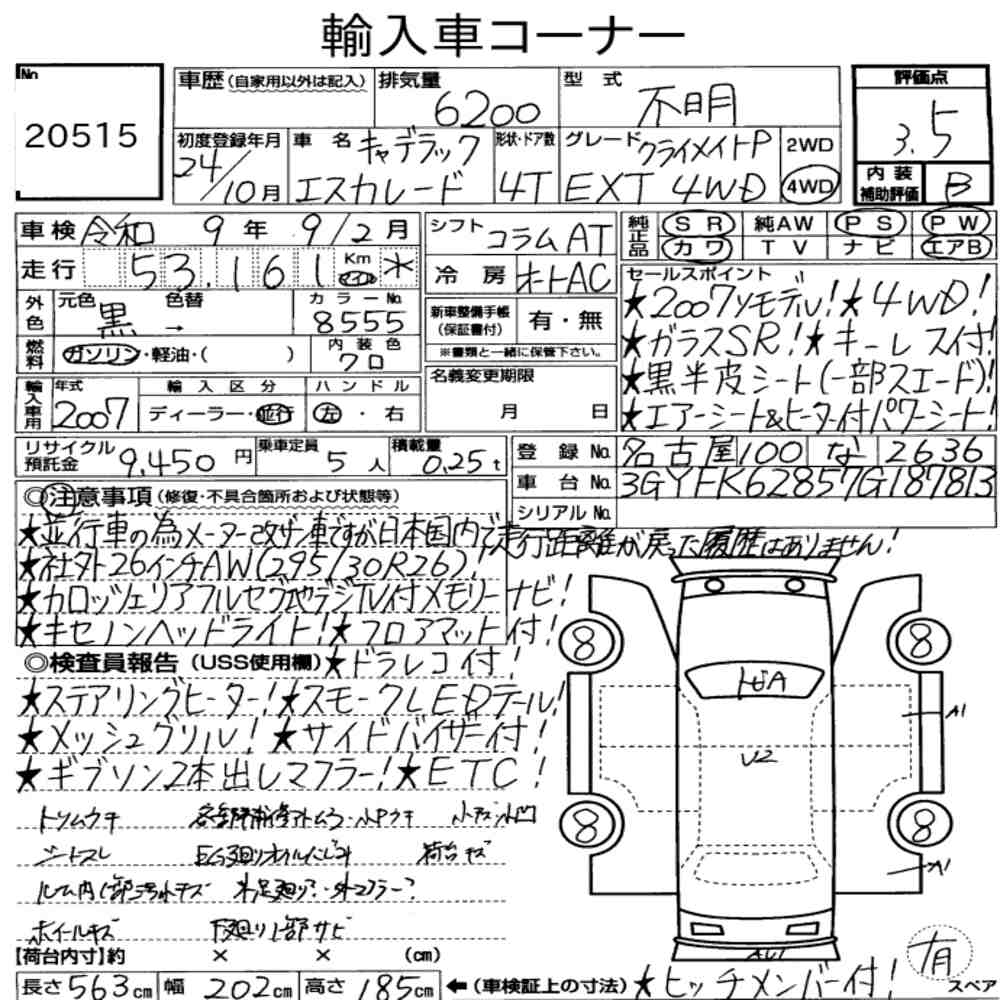 輸入車コーナー
No 20515
車歴(自家用以外は記入) 排気量 6200 型式 不明
初度登録年月 24/10月 車名 キャデラック エスカレード 形状・ドア数 4T グレード クライメイトP EXT 4WD 2WD 4WD
評価点 3.5
内装補助評価 B
車検 令和 9年 9/2月
走行 53,161 Km マイル *
シフト コラムAT
冷房 オートAC
純正品 SR 純AW PS PW
カワ TV ナビ エアB
外色 元色 黒 → 色替 カラーNo. 8555
燃料 ガソリン・軽油・( ) 内装色 クロ
新車整備手帳(保証書付) 有・無
※書類と一緒に保管下さい。
輸入車用 年式 2007 輸入区分 ディーラー・並行 ハンドル 左・右
名義変更期限 月 日
セールスポイント
★2007yモデル!★4WD!
★ガラスSR!★キーレス付!
★黒半皮シート(一部スエード)!
★エアーシート&ヒーター付パワーシート!
リサイクル預託金 9,450円 乗車定員 5人 積載量 0.25t
登録No. 名古屋 100 な 2636
車台No. 3GYFK62857G187813
シリアルNo.
◎注意事項(修復・不具合箇所および状態等)
★並行車の為メーター改ザン車ですが日本国内で走行距離が戻った履歴はありません!
★社外26インチAW(295/30R26)!
★カロッツェリアフルセグ地デジTV付メモリーナビ!
★キセノンヘッドライト!★フロアマット付!
◎検査員報告(USS使用欄)★ドラレコ付!
★ステアリングヒーター!★スモークLEDテール!
★メッシュグリル!★サイドバイザー付!
★ギブソン2本出しマフラー!★ETC!
トリムウキ 小Pウキ 小キズ小凹
シートスレ E/G廻りオイルニジミ 荷台キズ
ホイールキズ 下廻り1部サビ
8 8
トビA
A1
U2
8 8
A1
【荷台内寸】約 × × (cm)
長さ563cm 幅202cm 高さ185cm ←(車検証上の寸法)★ヒッチメンバー付!
有 スペア